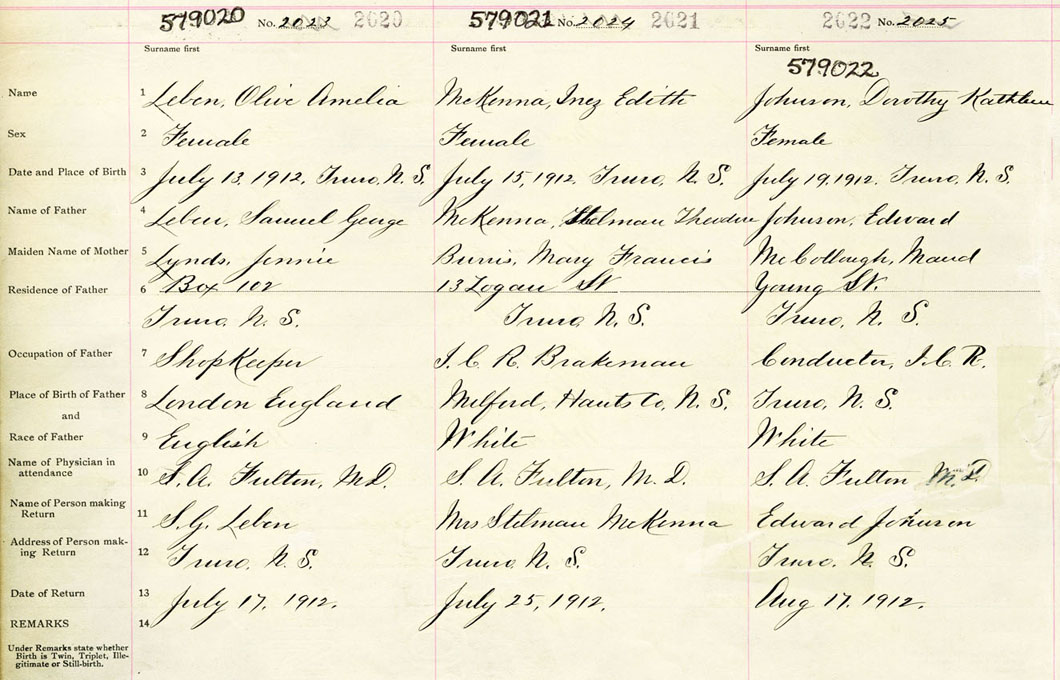 579020 No. 2023 2020 579021 No. 2024 2021 2022 No. 2025
Surname first Surname first Surname first
579022
Name 1 Leben, Olive Amelia McKenna, Inez Edith Johnson, Dorothy Kathleen
Sex 2 Female Female Female
Date and Place of Birth 3 July 13, 1912, Truro, N. S. July 15, 1912, Truro, N. S. July 19, 1912, Truro, N. S.
Name of Father 4 Leben, Samuel George McKenna, Stelman Theodore Johnson, Edward
Maiden Name of Mother 5 Lynds, Jennie Burris, Mary Francis McCollough, Maud
Residence of Father 6 Box 102 13 Logan St Young St.
Truro, N. S. Truro, N. S. Truro, N. S.
Occupation of Father 7 ShopKeeper I. C. R. Brakeman Conductor, I. C. R.
Place of Birth of Father 8 London England Milford, Hants Co, N. S. Truro, N. S.
and
Race of Father 9 English White White
Name of Physician in
attendance 10 S. A. Fulton, M.D. S. A. Fulton, M. D. S. A. Fulton M. D.
Name of Person making
Return 11 S. G. Leben Mrs Stelman McKenna Edward Johnson
Address of Person mak-
ing Return 12 Truro, N. S. Truro, N. S. Truro, N. S.
Date of Return 13 July 17, 1912. July 25, 1912. Aug 17, 1912.
REMARKS 14
Under Remarks state whether
Birth is Twin, Triplet, Ille-
gitimate or Still-birth.